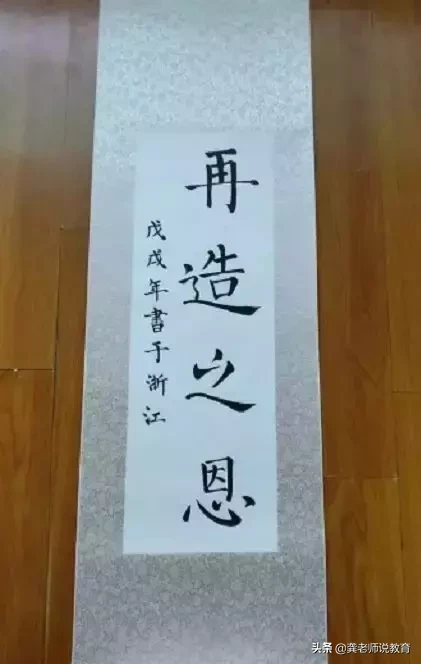 再造之恩
戊戌年書于浙江
头条 @龚老师说教育